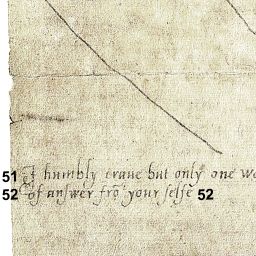 51 I humbly craue but only one wo
52 of answer frō your selfe 52